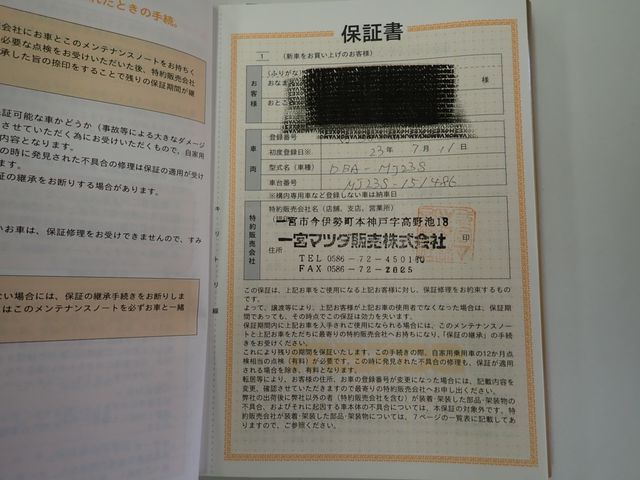 れたときの手続。
会社にお車とこのメンテナンスノートをお持ちく
必要な点検をお受けいただいた後、特約販売会社
承した旨の捺印をすることで残りの保証期間が継
証可能な車かどうか（事故等による大きなダメージ
させていただく為にお受けいただくもので、自家用
内容となります。
の時に発見された不具合の修理は保証の適用が受け
ます。
証の継承をお断りする場合があります。
いお車は、保証修理をお受けできませんので、すみ
ない場合には、保証の継承手続きをお断りしま
はこのメンテナンスノートを必ずお車と一緒
キリトリ線
保証書
1 （新車をお買い上げのお客様）
お客様
(ふりがな
おなま
様
おとこ
車両
登録番号
初度登録日※ 23年 7月 11日
型式名（車種） DBA-MJ23S
車台番号 MJ23S-151486
※構内専用車など登録しない車は納車日
特約販売会社
特約販売会社名（店舗、支店、営業所）
一宮市今伊勢町本神戸字高野池18
一宮マツダ販売株式会社 印
住所
TEL 0586-72-4501㈹
FAX 0586-72-2025
この保証は、上記お車をご使用になる上記お客様に対し、保証修理をお約束するもの
です。
よって、譲渡等により、上記お客様が上記お車の使用者でなくなった場合は、保証期
間であっても、その時点でこの保証は効力を失います。
保証期間内に上記お車を入手されご使用になられる場合には、このメンテナンスノー
トと上記お車をただちに最寄りの特約販売会社へお持ちになり、「保証の継承」の手続
きをお受けください。
これにより残りの期間を保証いたします。この手続きの際、自家用乗用車の12か月点
検相当の点検（有料）が必要です。この時に発見された不具合の修理も、保証が適用
される場合を除き、有料となります。
転居等により、お客様の住所、お車の登録番号が変更になった場合には、記載内容を
変更、確認させていただきますので最寄りの特約販売会社へお申し出ください。
弊社の出荷後に弊社以外の者（特約販売会社を含む）が装着・架装した部品・架装物の
不具合、およびそれに起因する車本体の不具合については、本保証の対象外です。特
約販売会社が装着・架装した部品・架装物については、7ページの一覧表に記載してあ
りますので、ご参照ください。